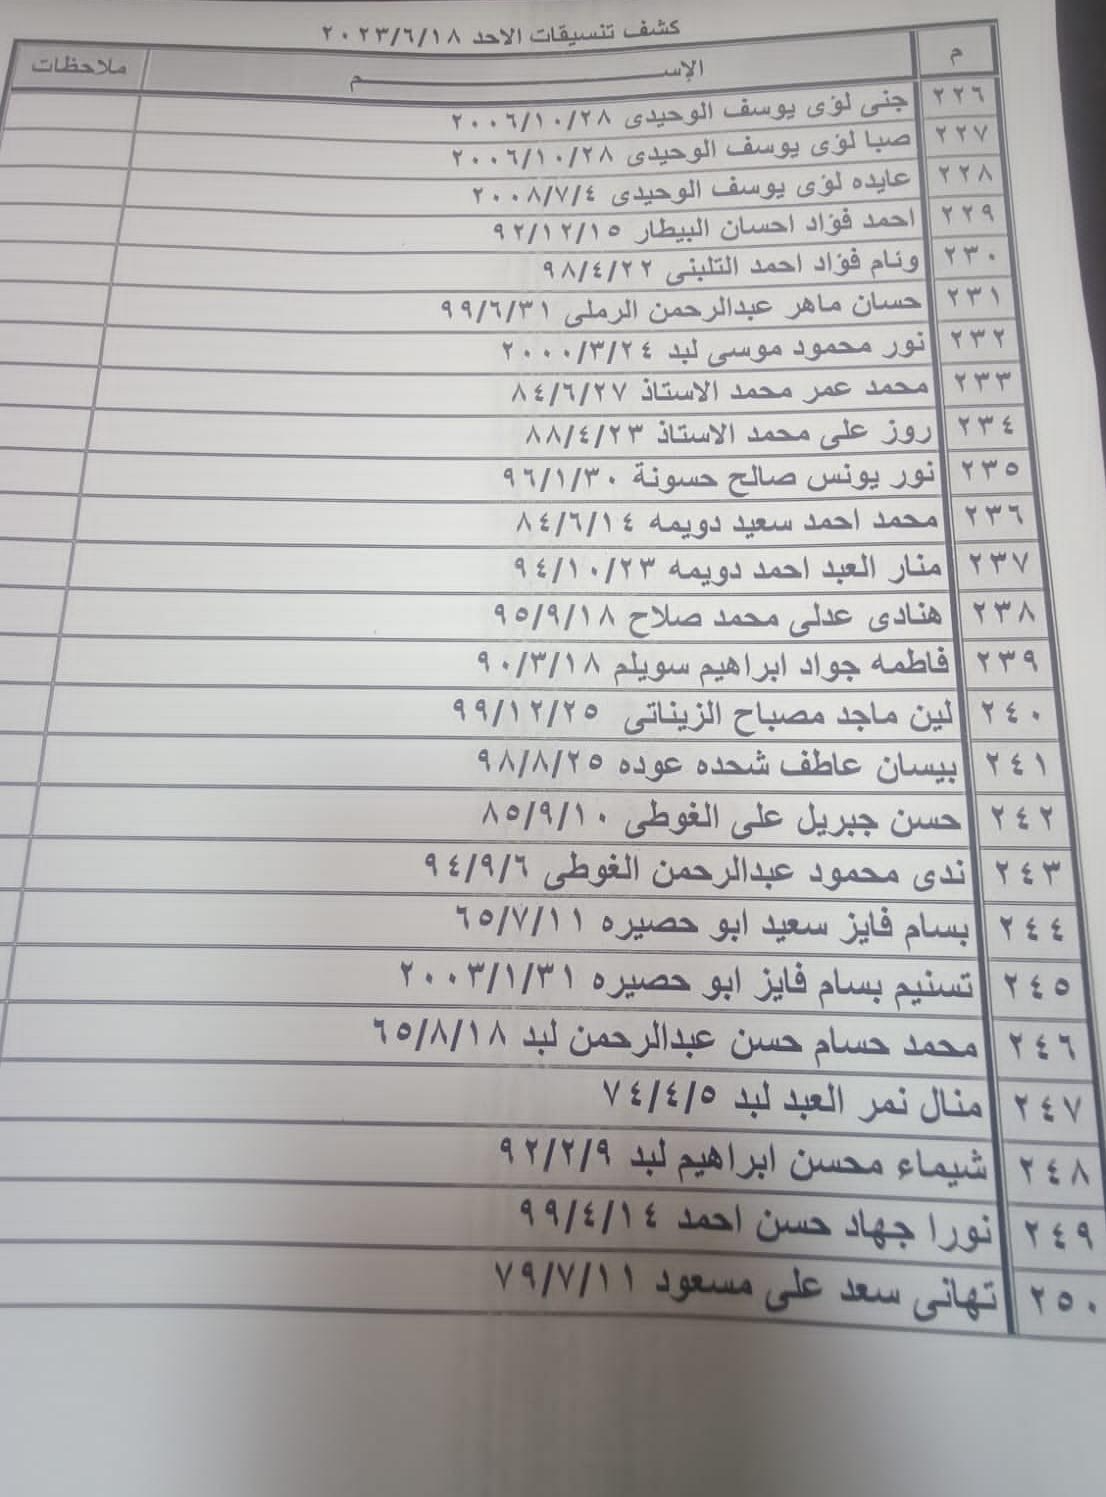 كشف تنسيقات الاحد ٢٠٢٣/٦/١٨
م الإســـــم ملاحظات
٢٢٦ جنى لؤى يوسف الوحيدى ٢٠٠٦/١٠/٢٨
٢٢٧ صبا لؤى يوسف الوحيدى ٢٠٠٦/١٠/٢٨
٢٢٨ عايده لؤى يوسف الوحيدى ٢٠٠٨/٧/٤
٢٢٩ احمد فؤاد احسان البيطار ٩٢/١٢/١٥
٢٣٠ وئام فؤاد احمد التلبنى ٩٨/٤/٢٢
٢٣١ حسان ماهر عبدالرحمن الرملى ٩٩/٦/٣١
٢٣٢ نور محمود موسى لبد ٢٠٠٠/٣/٢٤
٢٣٣ محمد عمر محمد الاستاذ ٨٤/٦/٢٧
٢٣٤ روز على محمد الاستاذ ٨٨/٤/٢٣
٢٣٥ نور يونس صالح حسونة ٩٦/١/٣٠
٢٣٦ محمد احمد سعيد دويمه ٨٤/٦/١٤
٢٣٧ منار العبد احمد دويمه ٩٤/١٠/٢٣
٢٣٨ هنادى عدلى محمد صلاح ٩٥/٩/١٨
٢٣٩ فاطمه جواد ابراهيم سويلم ٩٠/٣/١٨
٢٤٠ لين ماجد مصباح الزيناتى ٩٩/١٢/٢٥
٢٤١ بيسان عاطف شحده عوده ٩٨/٨/٢٥
٢٤٢ حسن جبريل على الغوطى ٨٥/٩/١٠
٢٤٣ ندى محمود عبدالرحمن الغوطى ٩٤/٩/٦
٢٤٤ بسام فايز سعيد ابو حصيره ٦٥/٧/١١
٢٤٥ تسنيم بسام فايز ابو حصيره ٢٠٠٣/١/٣١
٢٤٦ محمد حسام حسن عبدالرحمن لبد ٦٥/٨/١٨
٢٤٧ منال نمر العبد لبد ٧٤/٤/٥
٢٤٨ شيماء محسن ابراهيم لبد ٩٢/٢/٩
٢٤٩ نورا جهاد حسن احمد ٩٩/٤/١٤
٢٥٠ تهانى سعد على مسعود ٧٩/٧/١١